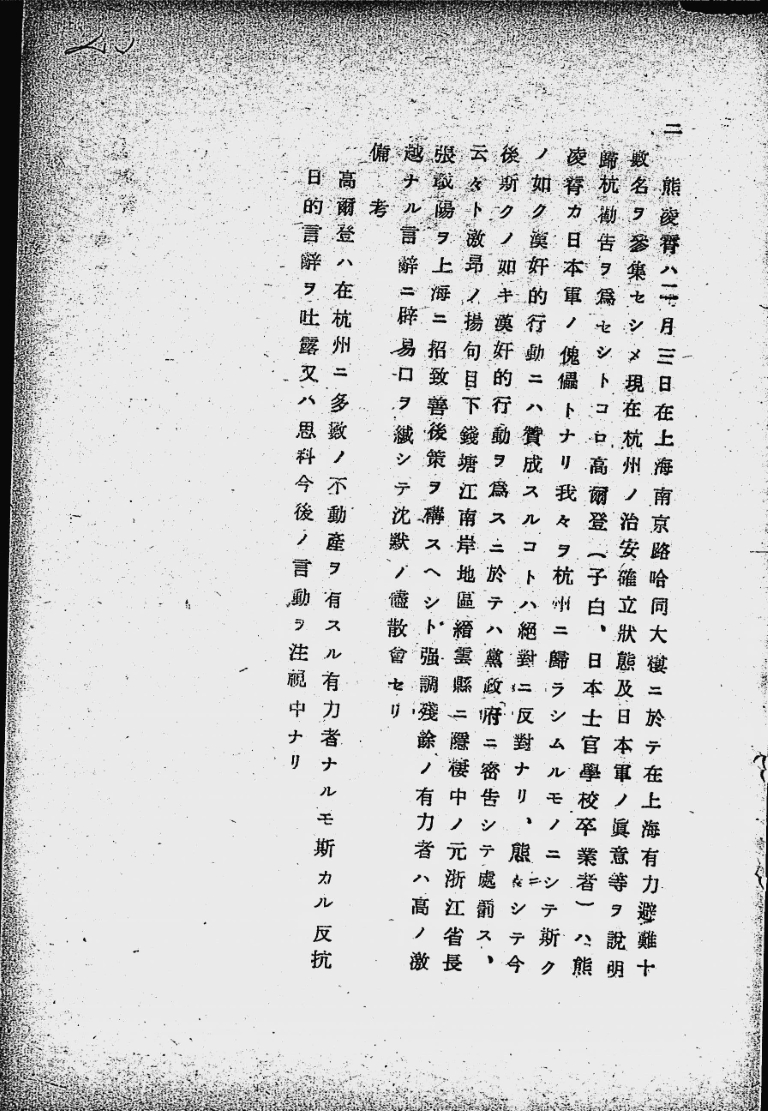 二
熊凌霄ハ二月三日在上海南京路哈同大樓ニ於テ在上海有力避難十
數名ヲ參集セシメ現在杭州ノ治安確立狀態及日本軍ノ眞意等ヲ說明
歸杭勸告ヲ爲セシトコロ高爾登（子白、日本士官學校卒業者）ハ熊
凌霄カ日本軍ノ傀儡トナリ我々ヲ杭州ニ歸ラシムルモノニシテ斯ク
ノ如ク漢奸的行動ニハ贊成スルコトハ絕對ニ反對ナリ、熊ニシテ今
後斯クノ如キ漢奸的行動ヲ爲スニ於テハ黨政府ニ密吿シテ處罰ス、
云々ト激昂ノ揚句目下錢塘江南岸地區縉雲縣ニ隱棲中ノ元浙江省長
張載陽ヲ上海ニ招致善後策ヲ構スヘシト强調殘餘ノ有力者ハ高ノ激
越ナル言辭ニ辟易口ヲ緘シテ沈默ノ儘散會セリ
備考
高爾登ハ在杭州ニ多數ノ不動產ヲ有スル有力者ナルモ斯カル反抗
日的言辭ヲ吐露又ハ思科今後ノ言動ヲ注視中ナリ